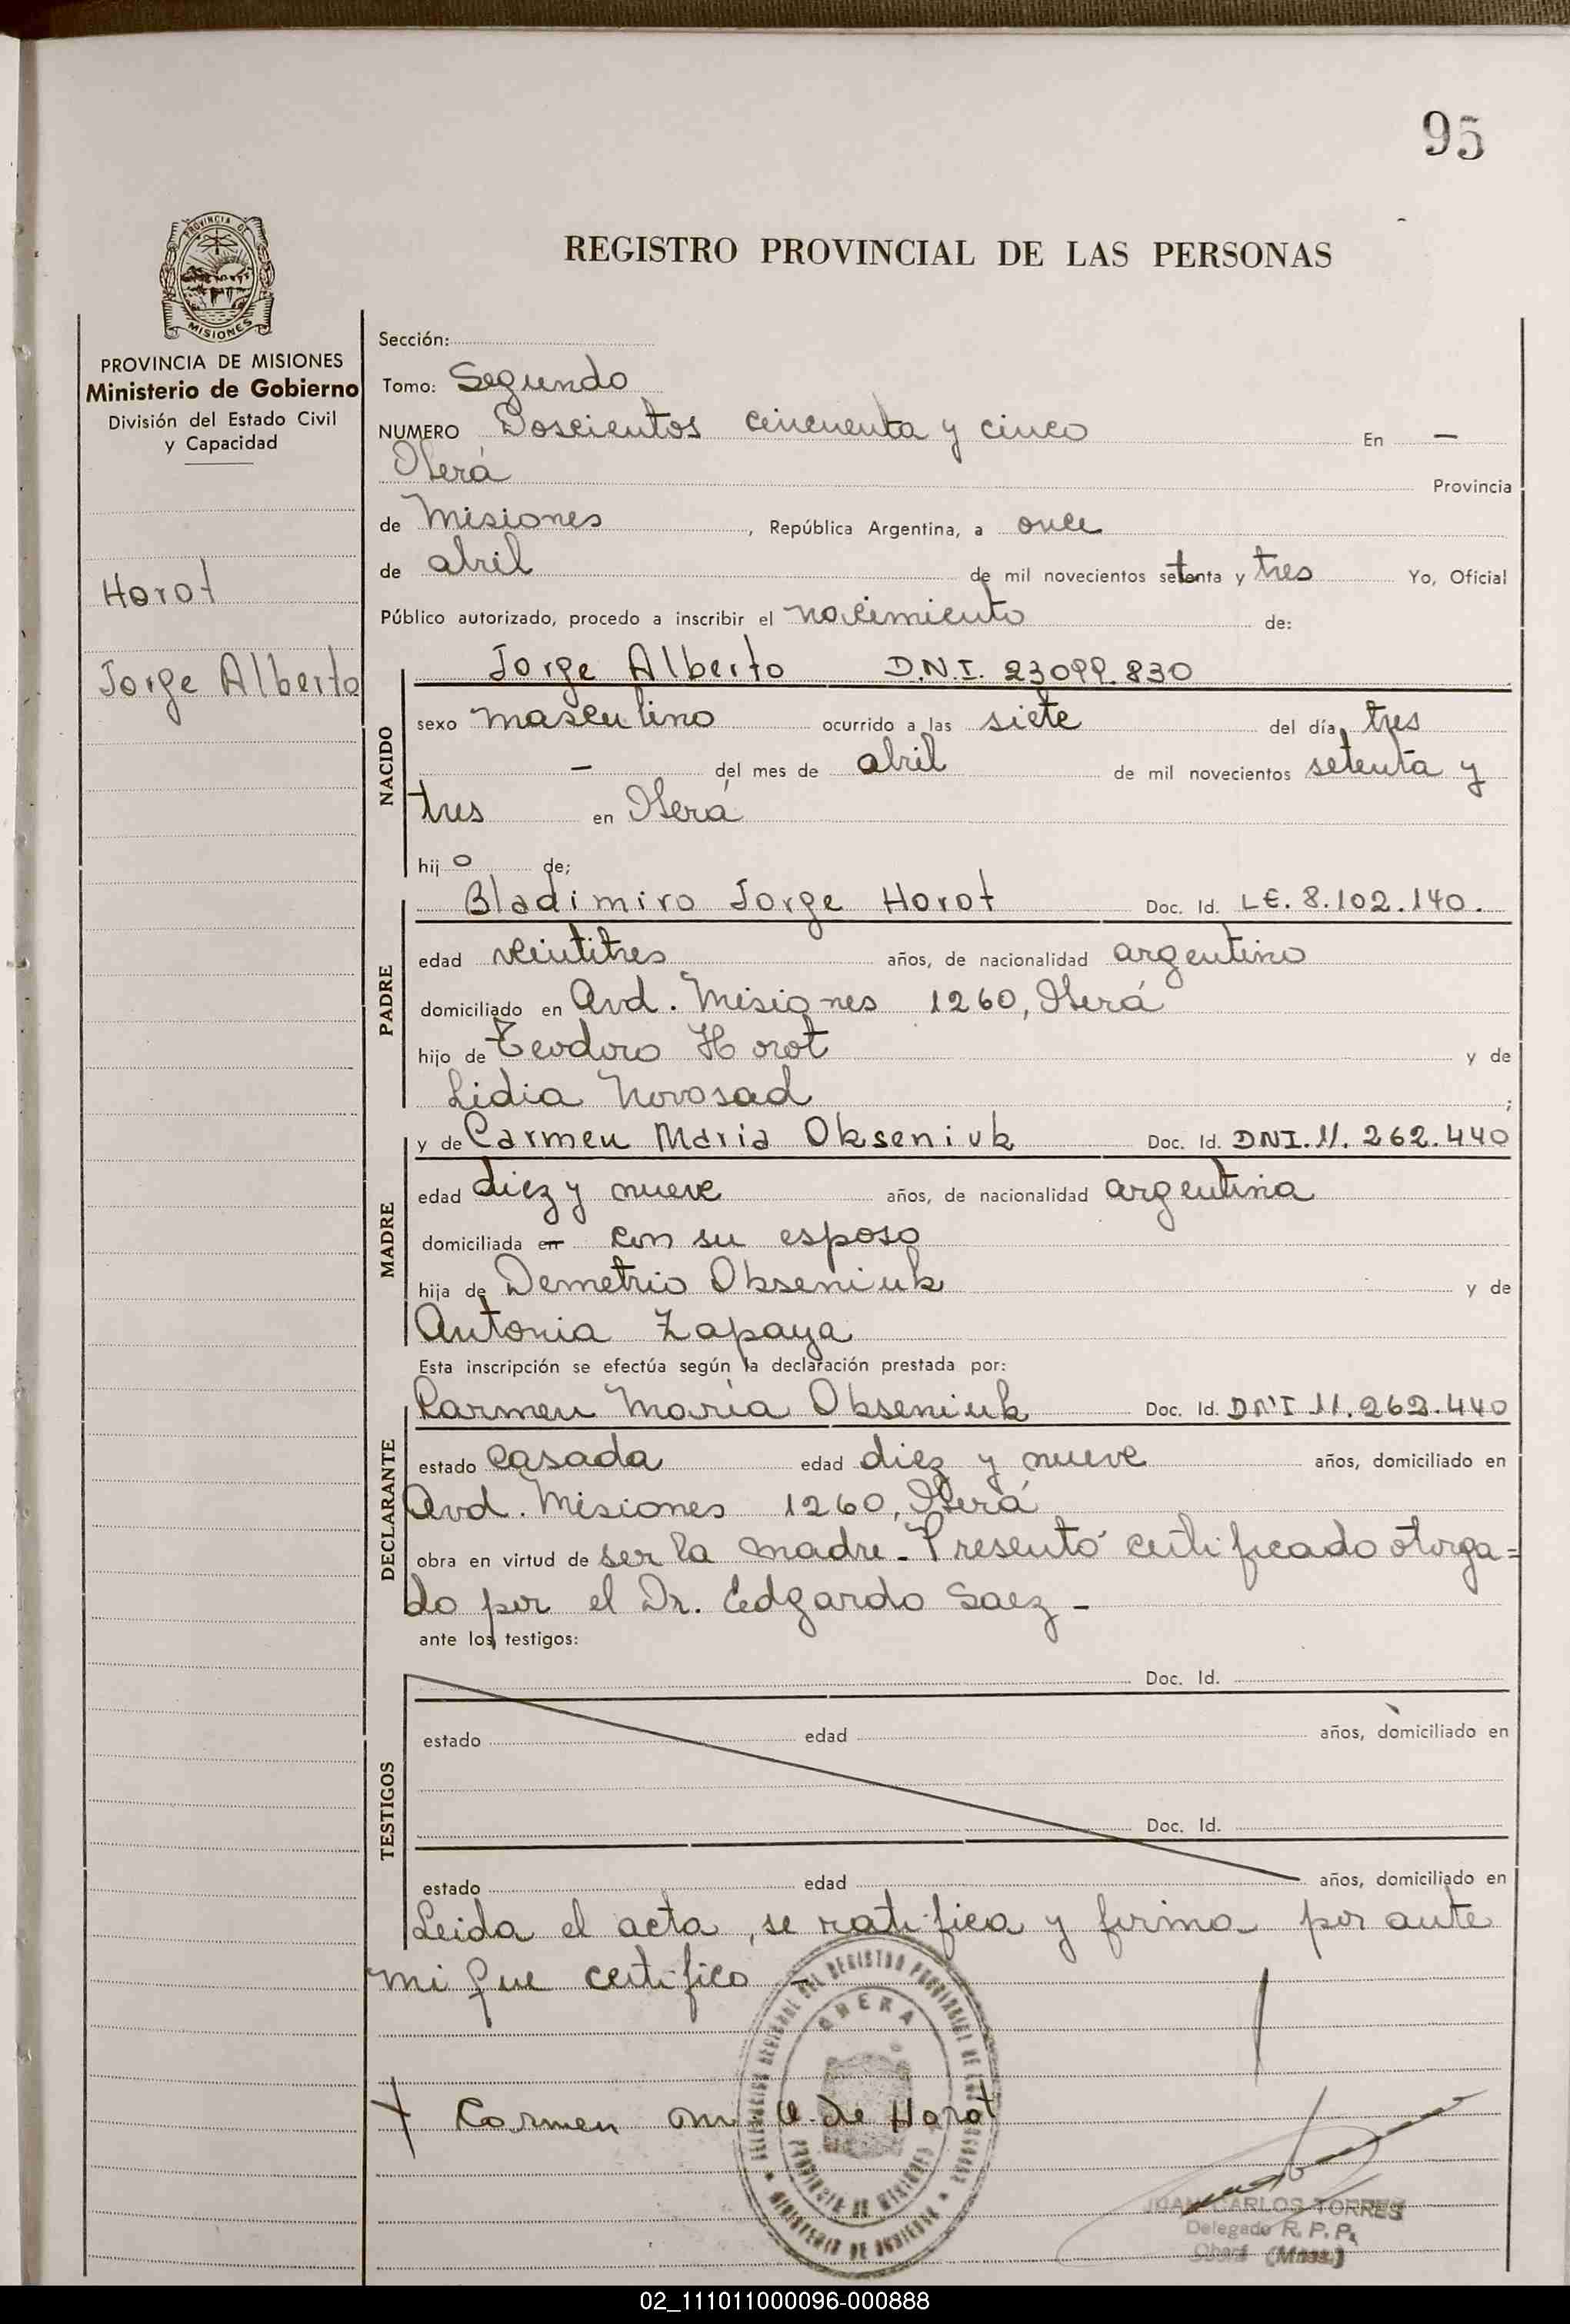 95
REGISTRO PROVINCIAL DE LAS PERSONAS
PROVINCIA DE MISIONES
PROVINCIA DE MISIONES
Ministerio de Gobierno
División del Estado Civil
y Capacidad
Horot
Jorge Alberto
Sección:
Tomo: Segundo
NUMERO Doscientos cincuenta y cinco En —
Oberá Provincia
de Misiones, República Argentina, a once
de abril de mil novecientos setenta y tres Yo, Oficial
Público autorizado, procedo a inscribir el nacimiento de:
NACIDO
Jorge Alberto D.N.I. 23099.830
sexo masculino ocurrido a las siete del día tres
— del mes de abril de mil novecientos setenta y
tres en Oberá
hijo de;
PADRE
Bladimiro Jorge Horot Doc. Id. LE. 8.102.140.
edad veintitres años, de nacionalidad argentino
domiciliado en Avd. Misiones 1260, Oberá
hijo de Teodoro Horot y de
Lidia Novosad ;
MADRE
y de Carmen Maria Okseniuk Doc. Id. DNI. 11. 262.440
edad diez y nueve años, de nacionalidad argentina
domiciliada en con su esposo
hija de Demetrio Okseniuk y de
Antonia Zapaya
Esta inscripción se efectúa según la declaración prestada por:
DECLARANTE
Carmen María Okseniuk Doc. Id. DNI 11.262.440
estado casada edad diez y nueve años, domiciliado en
Avd. Misiones 1260, Oberá
obra en virtud de ser la madre - Presentó certificado otorga=
do por el Dr. Edgardo Saez -
ante los testigos:
TESTIGOS
Doc. Id.
estado edad años, domiciliado en
Doc. Id.
estado edad años, domiciliado en
Leida el acta, se ratifica y firma por ante
mi que certifico -
DELEGACION REGIONAL DEL REGISTRO PROVINCIAL DE LAS PERSONAS
OBERA
PROVINCIA DE MISIONES
MINISTERIO DE GOBIERNO
Carmen M O. de Horot
JUAN CARLOS TORRES
Delegado R. P. P.
Oberá (Mnes.)
02_111011000096-000888